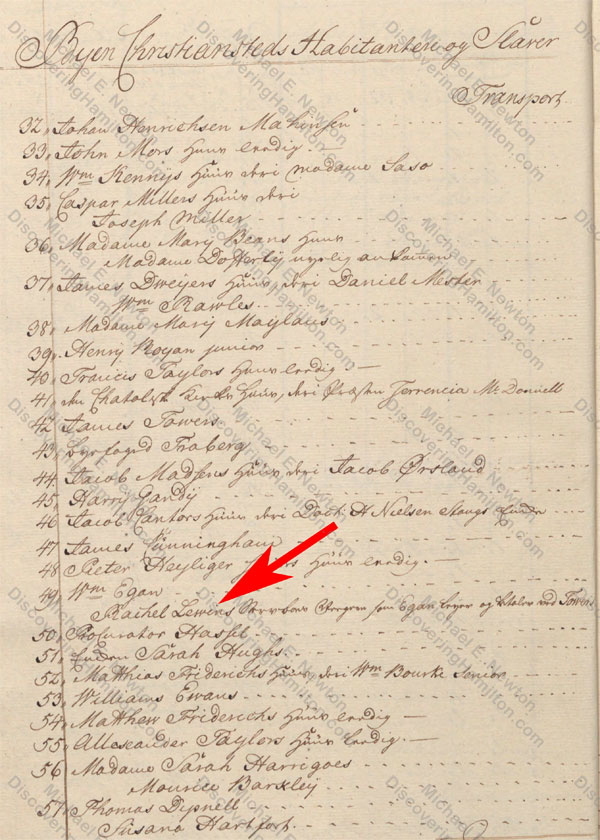 Byen Christiansteds Habitantere og Slaver
Transport
32, Johan Henrichsen
33, John Mors Huus leedig
34, Wm Kennys Huus deri Madame Saso
35, Caspar Millers Huus deri
Joseph Miller
36, Madame Mary Beans Huus
Madame
37, James Dweyers Huus deri Daniel
Wm Rawles
38, Madame Mary
39, Henry junior
40, Francis Taylors Huus leedig
41, Huus, deri Mc Donnell
42, James Towers
43, Byefoged
44, Jacob Madsens Huus deri Jacob Ørslund
45, Harry Gandy
46, Jacob Cantors Huus deri Doct. H Nielsen
47, James Cunningham
48, Pieter Heyliger Huus leedig
49, Wm Egan
Rachel Lewins som Egan og ved Towers
50, Procurator Hassel
51, Sarah Hughs
52, Matthias Friderichs Huus, deri Wm Bourke Senior
53, Williams Ewans
54, Matthew Friderichs Huus leedig
55, Allexander Taylors Huus leedig
56, Madame Sarah Harrigoes
Mourice Barkley
57, Thomas Dipnell
Susana
Michael E. Newton
DiscoveringHamilton.com